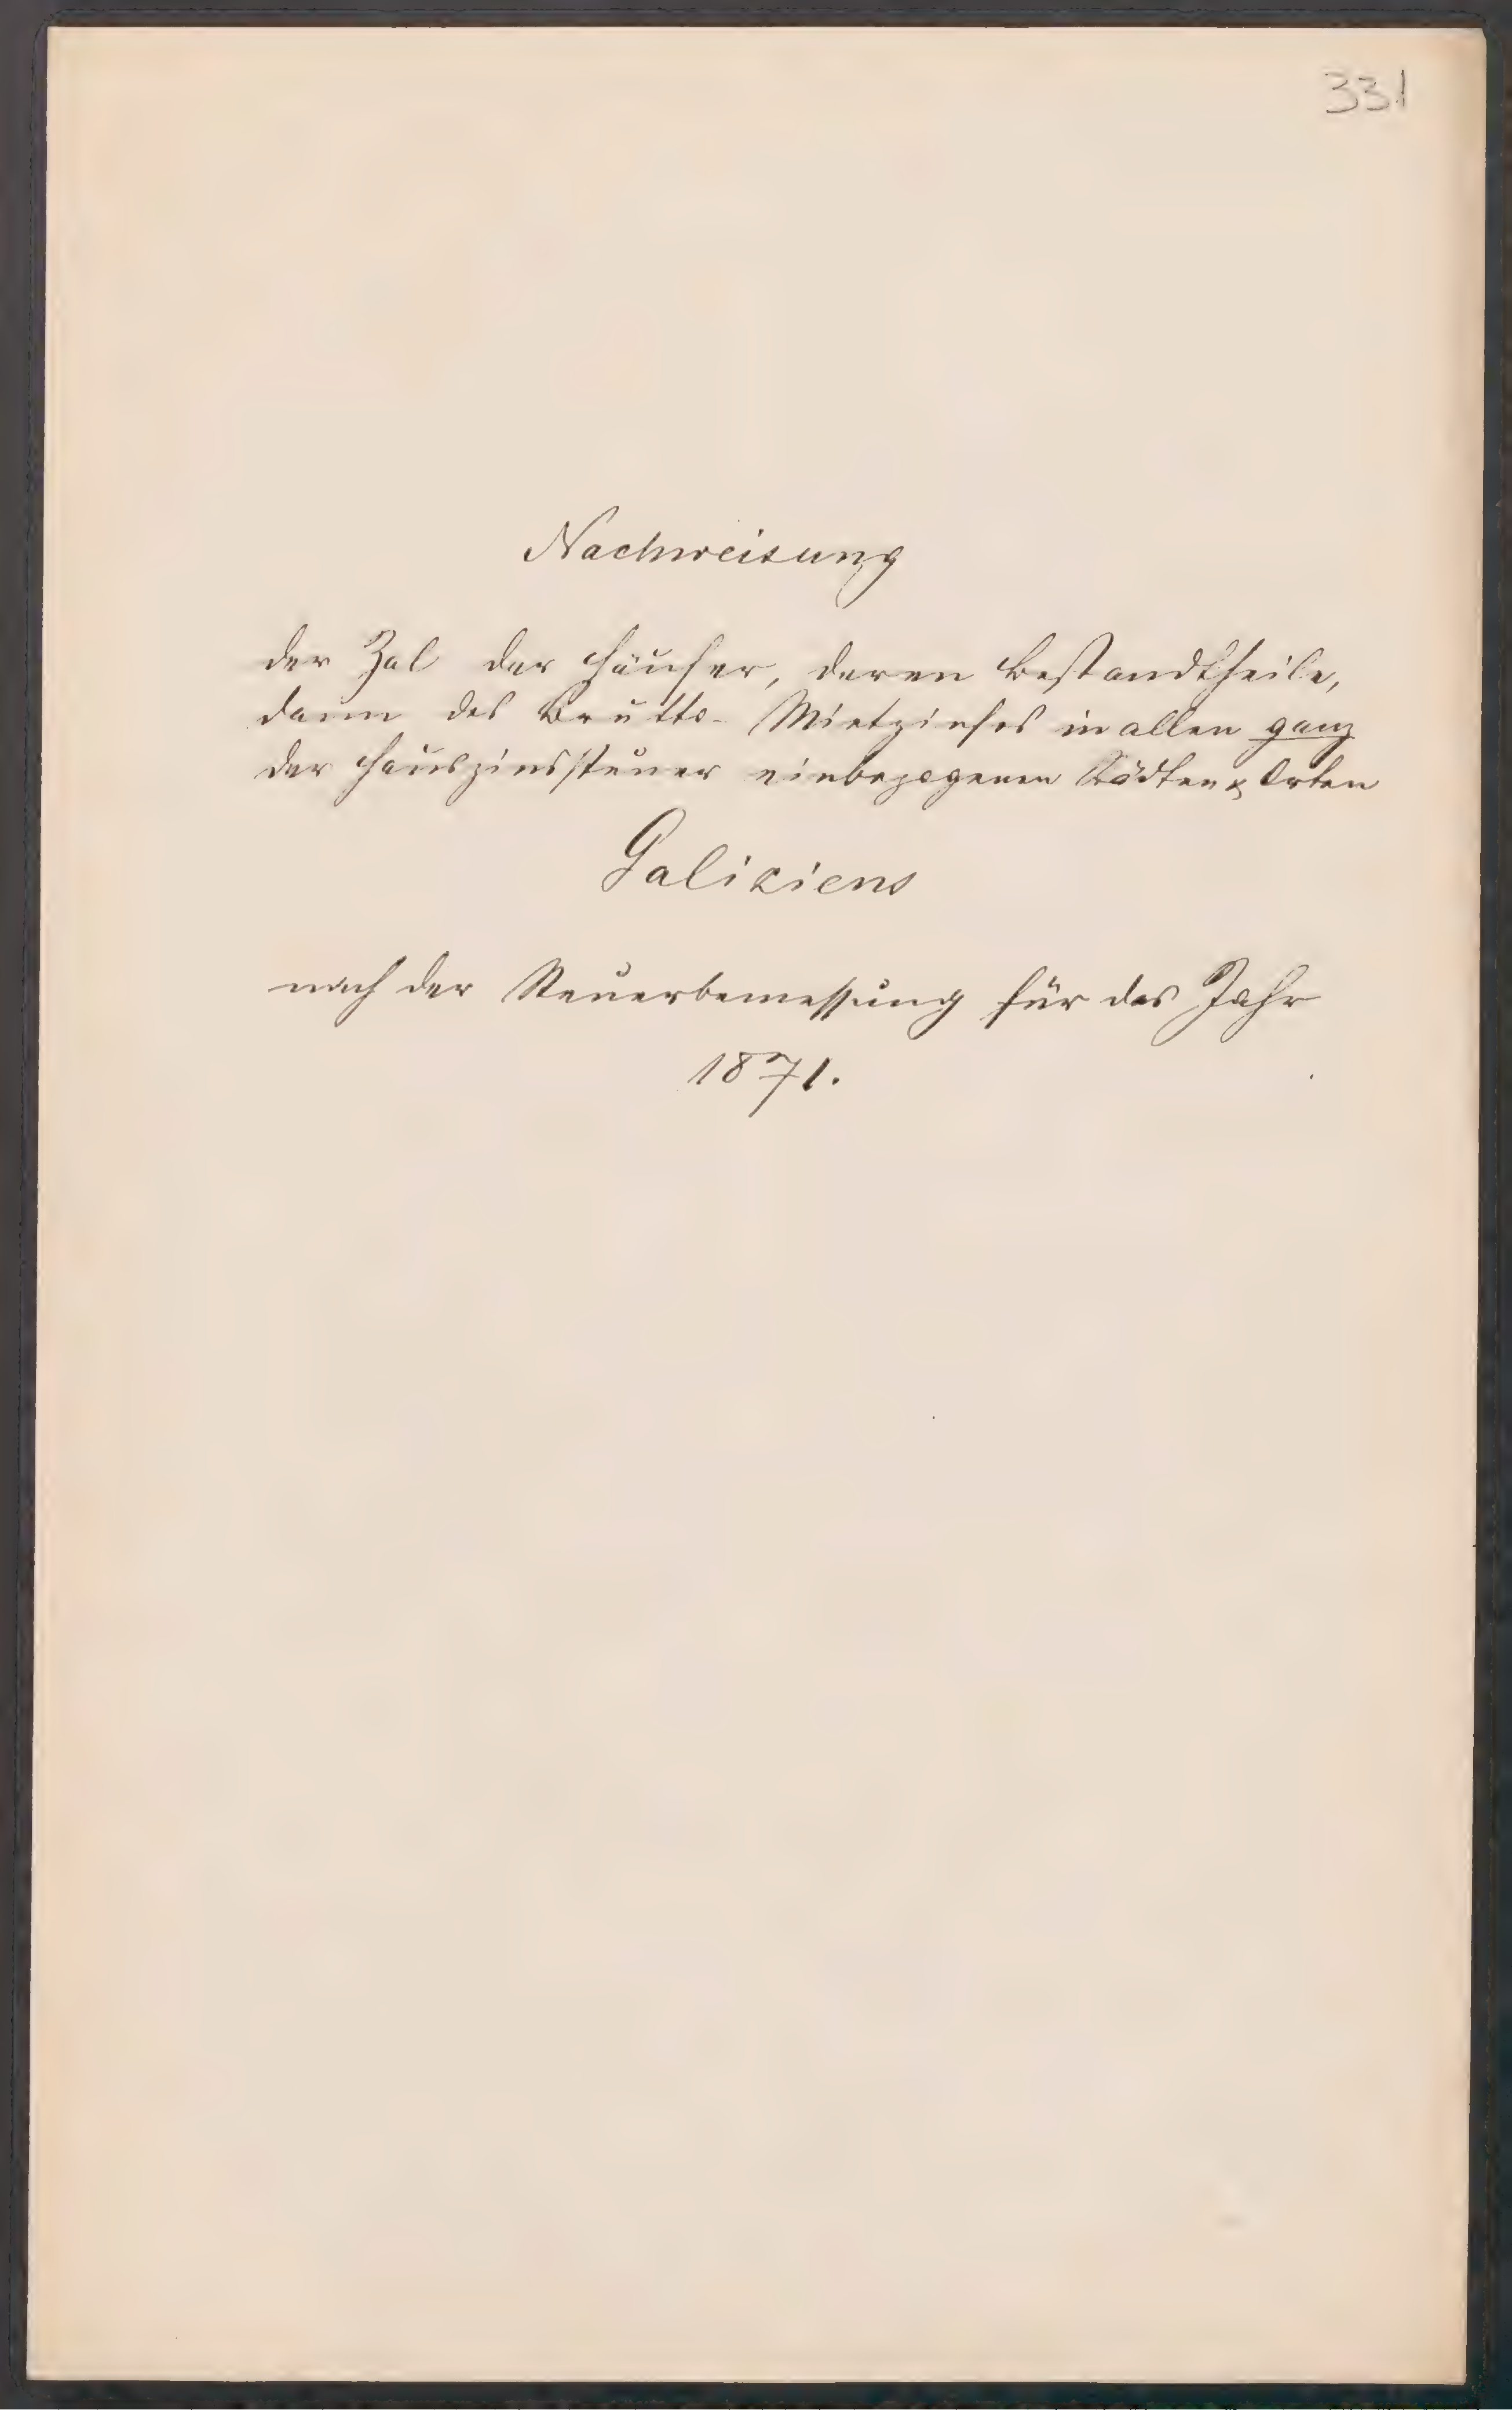 331
Nachweisung
der Zal der Häuser, deren Bestandtheile,
dann des Brutto-Mietzinses in allen ganz
der Hauszinssteuer einbezogenen Städten & Orten
Galiziens
nach der Steuerbemessung für das Jahr
1871.